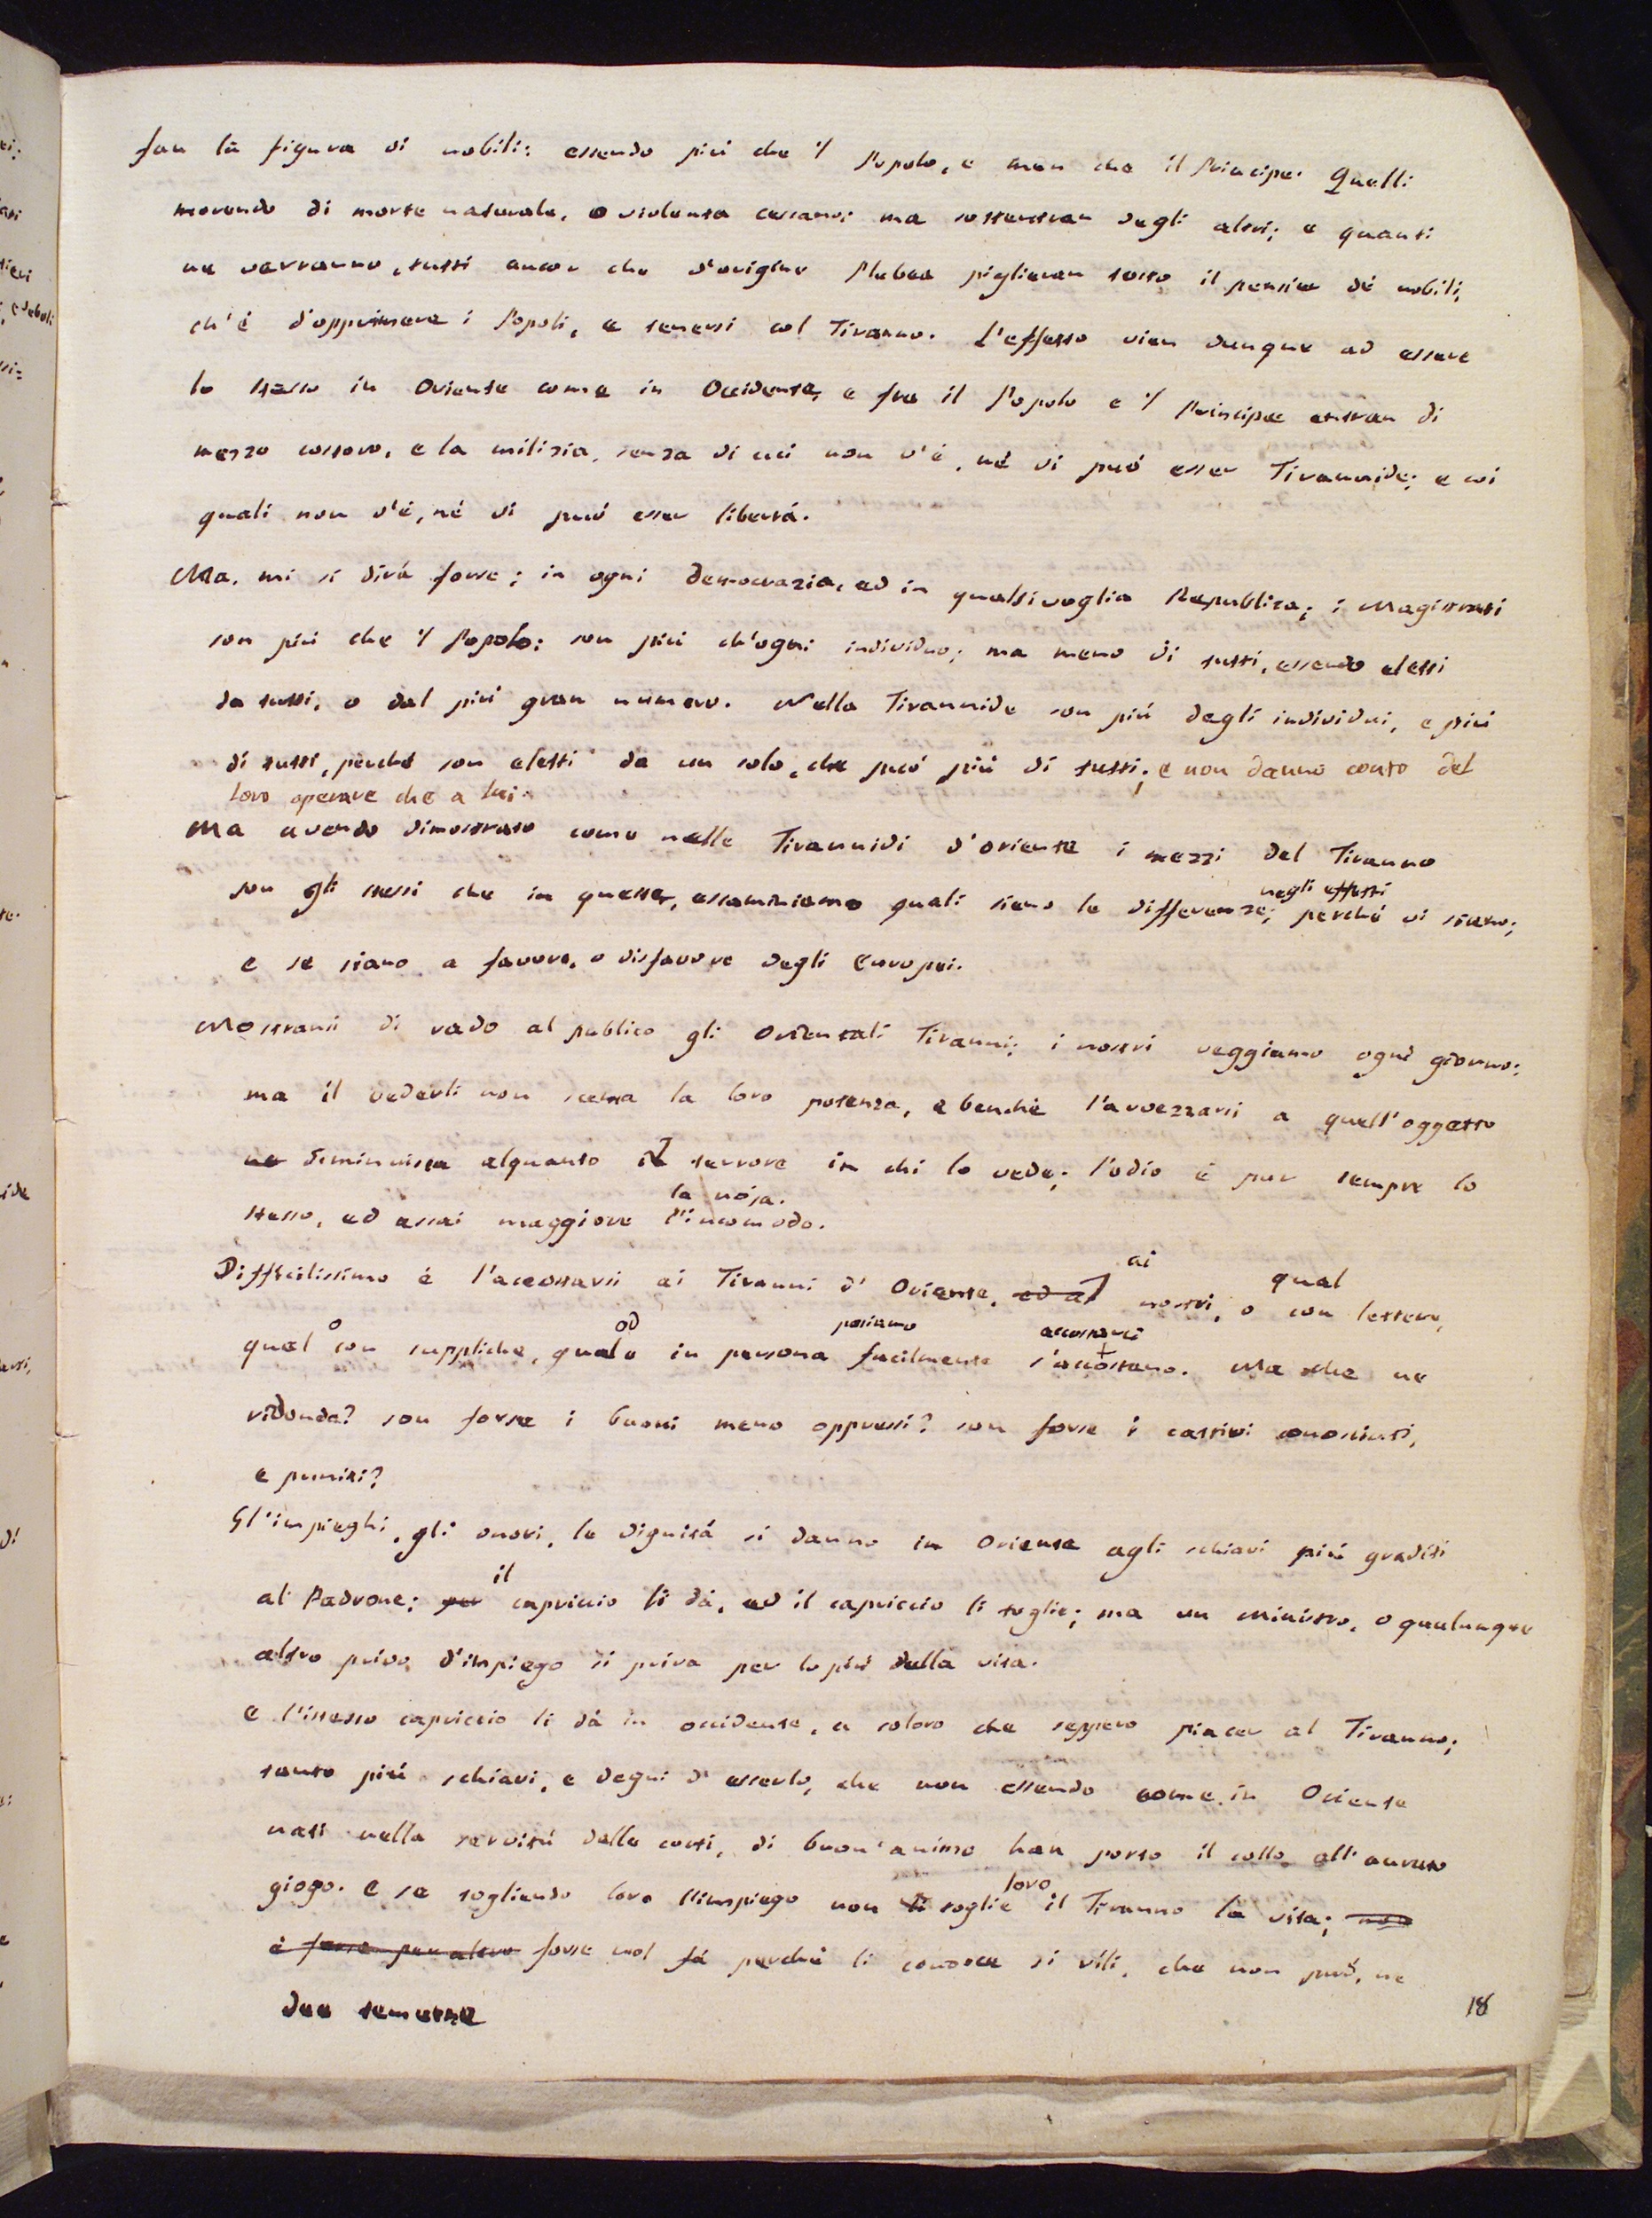 fan la figura di nobili: essendo più che 'l Popolo, e men che il Principe. Quelli
morendo di morte naturale, o violenta cessano: ma sottentran degli altri; e quanti
ne verranno, tutti ancor che d'origine Plebea piglieran tosto il pensier dé nobili,
ch'é d'opprimere i Popoli, e tenersi col Tiranno. L'effetto vien dunque ad essere
lo stesso in Oriente come in Occidente, e fra il Popolo e 'l Principe entran di
mezzo costoro, e la milizia, senza di cui non v'é, né vi può esser Tirannide; e coi
quali non v'é, né vi può esser libertá.
Ma, mi si dirá forse; in ogni democrazia, ed in qualsivoglia Republica; i Magistrati
son più che 'l Popolo: son più ch'ogni individuo; ma meno di tutti, essendo eletti
da tutti, o dal più gran numero. Nella Tirannide son più degli individui, e più
di tutti, perché son eletti da un solo, che può più di tutti; e non danno conto del
loro operare che a lui.
Ma avendo dimostrato come nelle Tirannidi d'oriente i mezzi del Tiranno
son gli stessi che in queste, essaminiamo quali sieno le differenze; negli effetti perché vi sieno;
e se siano a favore, o disfavore degli Europei.
Mostransi di rado al publico gli Orientali Tiranni; i nostri veggiamo ogni giorno:
ma il vederli non scema la loro potenza, e benché l'avvezzarsi a quell'oggetto
ne diminuisca alquanto il terrore in chi lo vede; l'odio é pur sempre lo
la noja.
stesso, ed assai maggiore l'incomodo.
ai qual
Difficilissimo é l'accostarsi ai Tiranni d'Oriente, ed al nostri, o con lettere,
o od possiamo accostarci
qual con suppliche, qualo in persona facilmente s'accostano. Ma che ne
ridonda? son forse i buoni meno oppressi? son forse i cattivi conosciuti,
e puniti?
Gl'impieghi, gli onori, le dignitá si danno in Oriente agli schiavi più graditi
il
al Padrone; per capriccio li dá, ed il capriccio li toglie; ma un Ministro, o qualunque
altro privo d'impiego si priva per lo più della vita.
E l'istesso capriccio li dá in occidente, a coloro che seppero piacer al Tiranno;
tanto più schiavi, e degni d'esserlo, che non essendo come in Oriente
nati nella servitú delle corti, di buon'animo han porto il collo all'aurato
loro
giogo. E se togliendo loro l'impiego non li toglie il Tiranno la vita; non
é forse per altro forse nol fá perché li conosce sí vili, che non può, ne
dee temerne
18